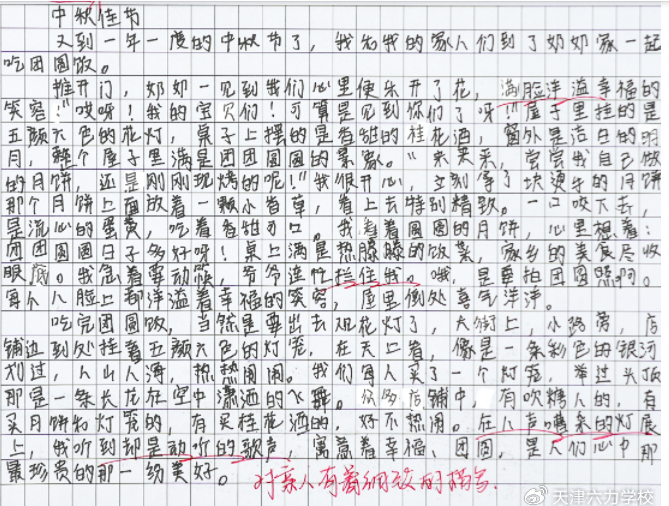 中秋佳节
又到一年一度的中秋节了，我和我的家人们到了奶奶家一起
吃团圆饭。
推开门，奶奶一见到我们心里便乐开了花，满脸洋溢幸福的
笑容："哎呀！我的宝贝们！可算是见到你们了呀！"屋子里挂的是
五颜六色的花灯，桌子上摆的是香甜的桂花酒，窗外是洁白的明
月，整个屋子里满是团团圆圆的景象。"来来来，尝尝我自己做
的月饼，还是刚刚现烤的呢！"我很开心，立刻拿了块烫手的月饼
那个月饼上面放着一颗小香草，看上去特别精致。一口咬下去，
是流心的蛋黄，吃着香甜可口。我看着圆圆的月饼，心里想着：
团团圆圆日子多好呀！桌上满是热腾腾的饭菜，家乡的美食尽收
眼底。我急着要动筷，爷爷连忙拦住我。哦，是要拍团圆照啊。
每个人脸上都洋溢着幸福的笑容，屋里倒处喜气洋洋。
吃完团圆饭，当然是要出去观花灯了，大街上，小路旁，店
铺边到处挂着五颜六色的灯笼，在天上看，像是一条彩色的银河
划过，人山人海，热热闹闹。我们每人买了一个灯笼，举过头顶
那是一条长龙在空中潇洒的飞舞。店铺中，有吹烤人的，有
买月饼和灯笼的，有买桂花酒的，好不热闹。在人声嘈杂的灯展
上，我听到却是动听的歌声，寓意着幸福、团圆，是人们心中那
最珍贵的那一份美好。
对亲人有着细致的描写.
@天津六力学校